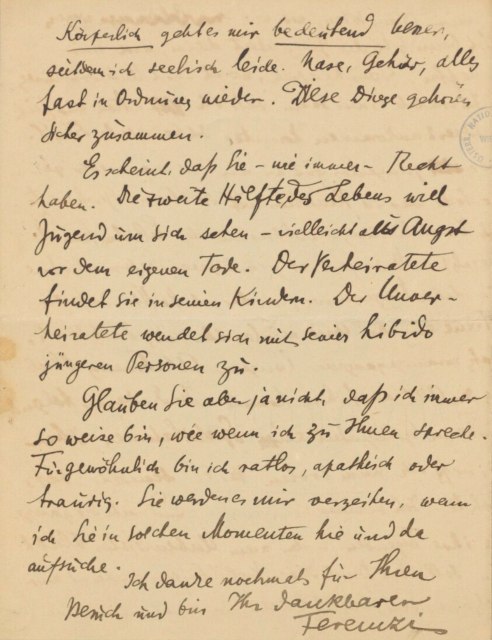 Körperlich geht es mir bedeutend besser,
seitdem ich seelisch leide. Nase, Gehör, alles
fast in Ordnung wieder. Diese Dinge gehören
sicher zusammen.
Es scheint, daß Sie – wie immer – Recht
haben. Die zweite Hälfte des Lebens will
Jugend um sich sehen – vielleicht aus Angst
vor dem eigenen Tode. Der Verheiratete
findet sie in seinen Kindern. Der Unver-
heiratete wendet sich mit seiner Libido
jüngeren Personen zu.
Glauben Sie aber ja nicht, daß ich immer
so weise bin, wie wenn ich zu Ihnen spreche.
Für gewöhnlich bin ich ratlos, apathisch oder
traurig. Sie werden es mir verzeihen, wenn
ich Sie in solchen Momenten hie und da
aufsuche.
Ich danke nochmals für Ihren
Besuch und bin Ihr dankbarer
Ferenczi